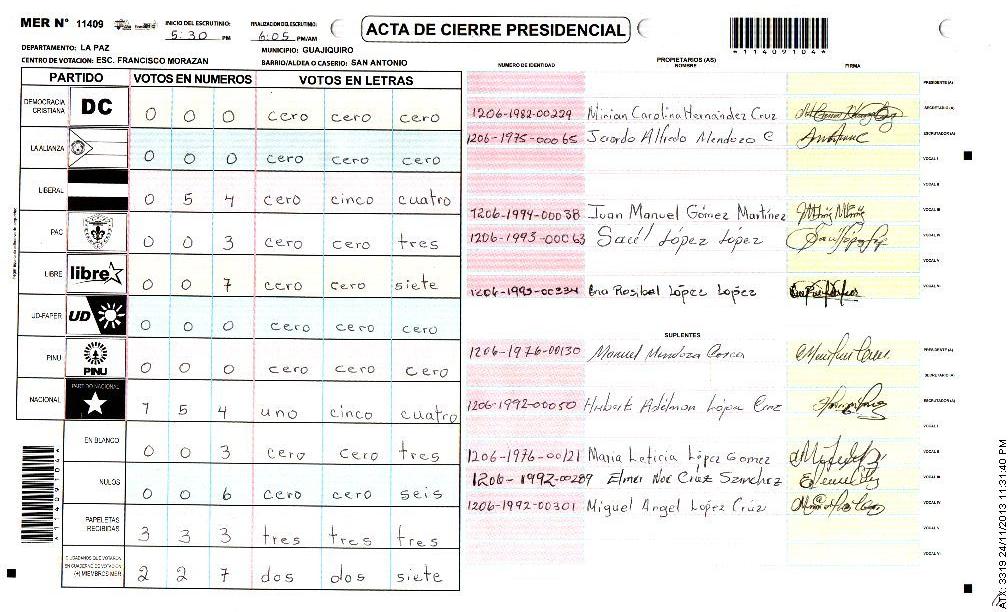 MER N° 11409
INICIO DEL ESCRUTINIO:
5:30 PM
FINALIZACION DEL ESCRUTINIO:
6:05 PM/AM
ACTA DE CIERRE PRESIDENCIAL
*11409104*
DEPARTAMENTO: LA PAZ
MUNICIPIO: GUAJIQUIRO
CENTRO DE VOTACION: ESC. FRANCISCO MORAZAN
BARRIO/ALDEA O CASERIO: SAN ANTONIO
PARTIDO VOTOS EN NUMEROS VOTOS EN LETRAS
DEMOCRACIA CRISTIANA DC 0 0 0 cero cero cero
LA ALIANZA 0 0 0 cero cero cero
LIBERAL 0 5 4 cero cinco cuatro
PAC 0 0 3 cero cero tres
LIBRE libre 0 0 7 cero cero siete
UD-FAPER UD 0 0 0 cero cero cero
PINU PINU 0 0 0 cero cero cero
NACIONAL PARTIDO NACIONAL 1 5 4 uno cinco cuatro
EN BLANCO 0 0 3 cero cero tres
NULOS 0 0 6 cero cero seis
PAPELETAS RECIBIDAS 3 3 3 tres tres tres
CIUDADANOS QUE VOTARON EN CUADERNO DE VOTACION (+) MIEMBROS MER 2 2 7 dos dos siete
*11409104*
NUMERO DE IDENTIDAD
PROPIETARIOS (AS)
NOMBRE
FIRMA
PRESIDENTE (A)
1206-1982-00229 Mirian Carolina Hernández Cruz SECRETARIO (A)
1206-1975-00065 Alfredo Mendoza C ESCRUTADOR (A)
VOCAL I
VOCAL II
1206-1994-00038 Juan Manuel Gómez Martínez VOCAL III
1206-1993-00063 López López VOCAL IV
VOCAL V
1206-1995-00334 López López
SUPLENTES
1206-1976-00130 Manuel Mendoza PRESIDENTE (A)
SECRETARIO (A)
1206-1992-00050 López Cruz ESCRUTADOR (A)
VOCAL I
1206-1976-00121 Maria Leticia López Gomez VOCAL II
1206-1992-00289 Elmer Noe Cruz Sanchez VOCAL III
1206-1992-00301 Miguel Angel López Cruz VOCAL IV
VOCAL V
VOCAL VI
3319 24/11/2013 11:31:40 PM